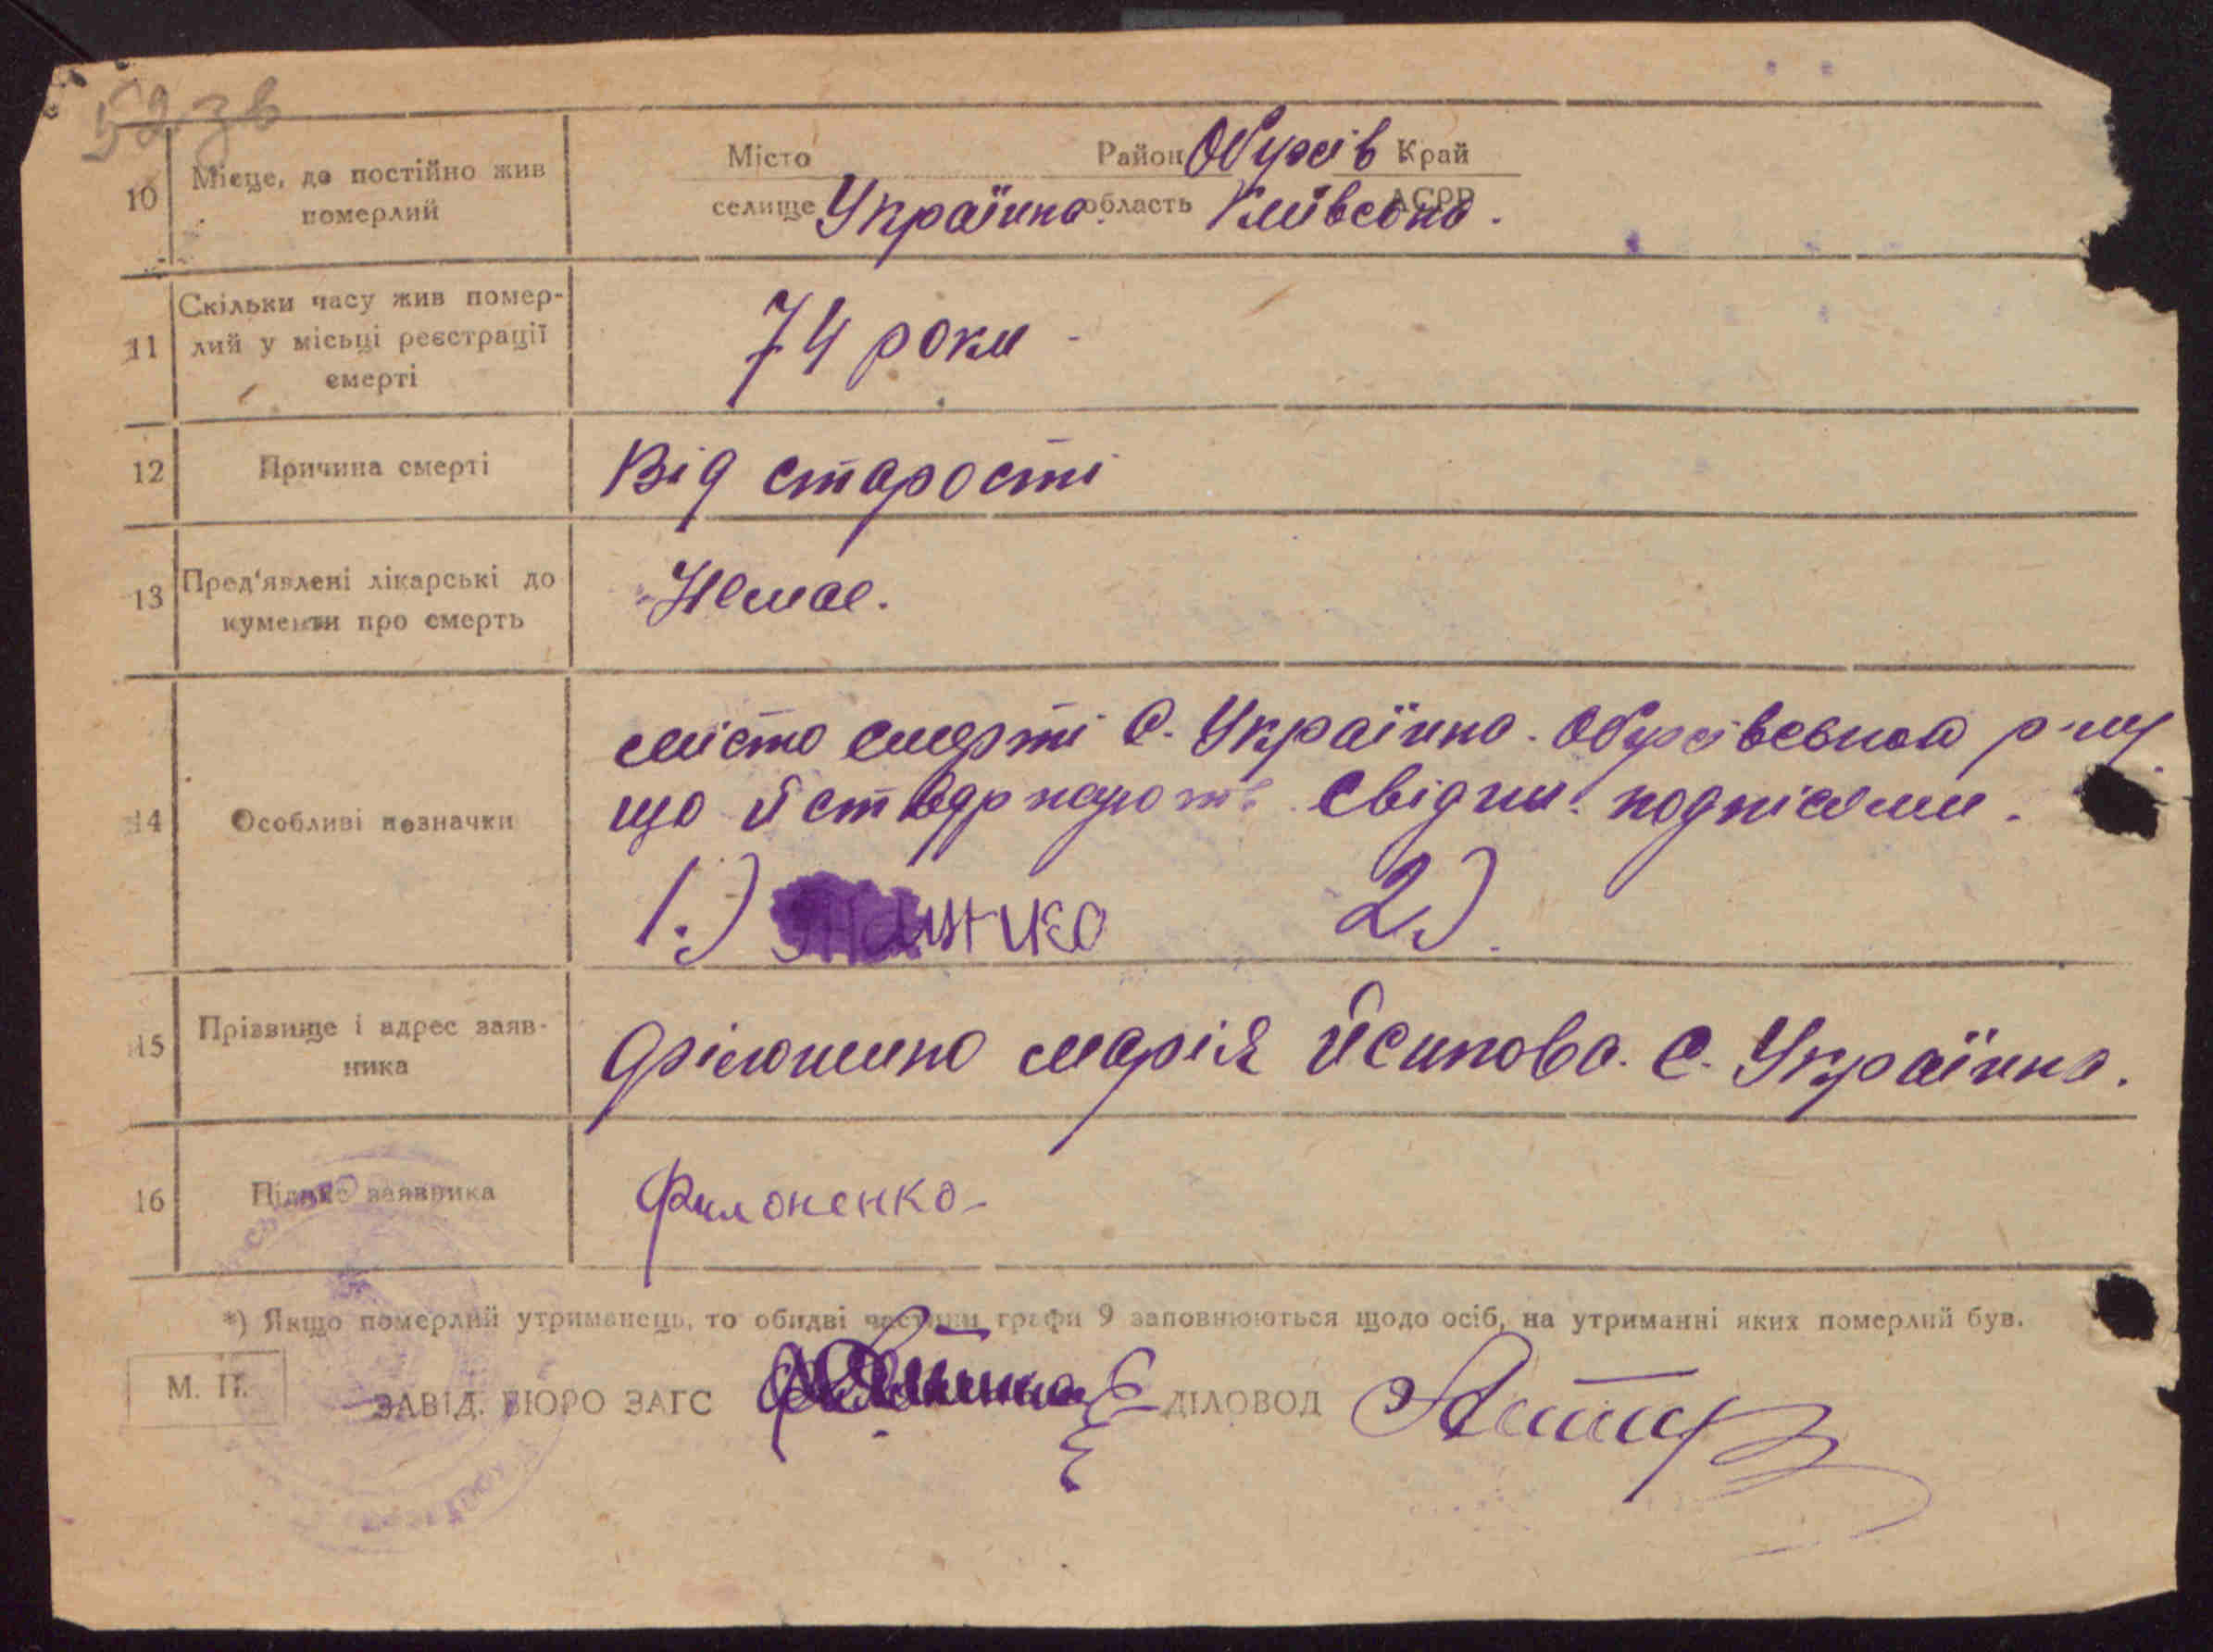 52 зв
10 Місце, де постійно жив померлий
Місто Район Обухів Край
селище Українка. область Київська. АСРР
11 Скільки часу жив помер-
лий у місьці реєстрації
смерті
74 роки
12 Причина смерті Від старості
13 Пред'явлені лікарські до
кументи про смерть
Немає.
14 Особливі позначки
місто смерті С. Українка. Обухівської р-ну
що й свідки подпісями.
1.) 2).
15 Прізвище і адрес заяв-
ника
марія Йсипова. С. Українка.
16 Підпис заявника Филоненко
*) Якщо померлий утриманець, то обидві частини графи 9 заповнюються щодо осіб, на утриманні яких померлий був.
М. П.
ЗАВІД. БЮРО ЗАГС ДІЛОВОД